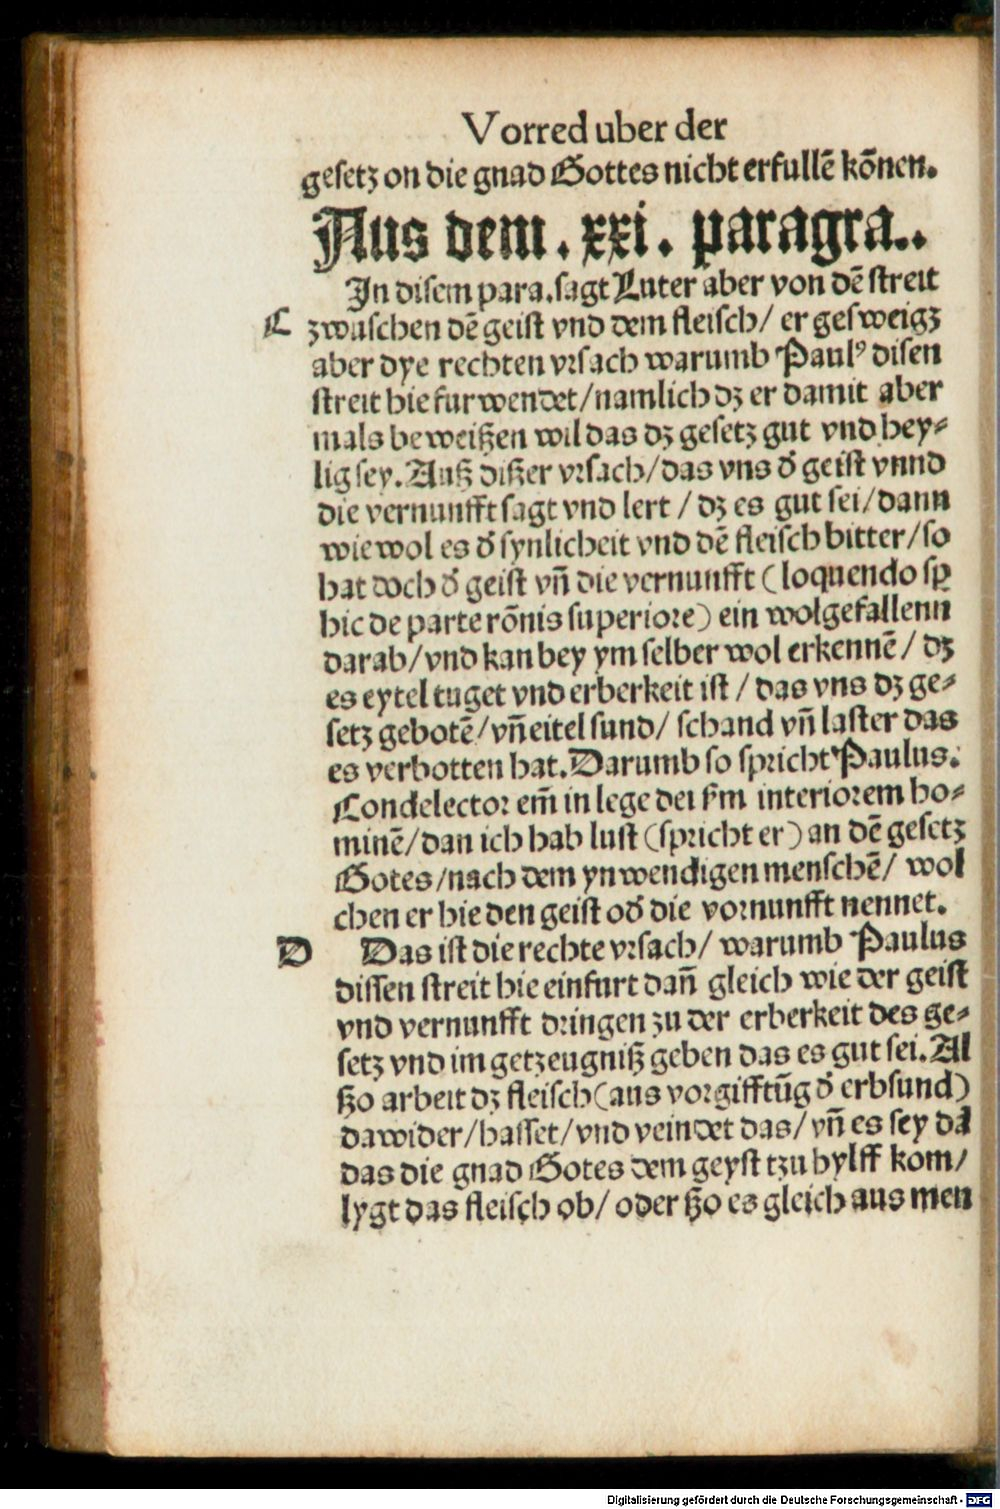 Vorred uber der
gesetz on die gnad Gottes nicht erfullē kōnen.
Aus dem . xxi . paragra..
In disem para. sagt Luter aber von dē streit
C zwuschen dē geist vnd dem fleisch/ er gesweigz
aber dye rechten vrsach warumb Paulꝰ disen
streit hie furwendet/namlich dz er damit aber
mals beweißen wil das dz gesetz gut vnd hey⸗
lig sey. Auß dißer vrsach/das vns d̄ geist vnnd
die vernunfft sagt vnd lert / dz es gut sei/dann
wiewol es d̄ synlicheit vnd dē fleisch bitter/so
hat doch d̄ geist vn̄ die vernunfft (loquendo sꝑ
hic de parte rōnis superiore) ein wolgefallenn
darab/vnd kan bey ym selber wol erkennē / dz
es eytel tuget vnd erberkeit ist / das vns dz ge⸗
setz gebotē/vn̄ eitel sund/ schand vn̄ laster das
es verbotten hat. Darumb so spricht Paulus.
Condelector em̄ in lege dei ẜm interiorem ho⸗
minē/dan ich hab lust (spricht er) an dē gesetz
Gotes/nach dem ynwendigen menschē/ wol
chen er hie den geist od̄ die vornunfft nennet.
D Das ist die rechte vrsach/ warumb Paulus
dissen streit hie einfurt dan̄ gleich wie der geist
vnd vernunfft dringen zu der erberkeit des ge⸗
setz vnd im getzeugniß geben das es gut sei. Al
ßo arbeit dz fleisch (aus vorgifftūg d̄ erbsund)
dawider/hasset/vnd veindet das/vn̄ es sey dā
das die gnad Gotes dem geyst tzu hylff kom/
lygt das fleisch ob/ oder ßo es gleich aus men
Digitalisierung gefördert durch die Deutsche Forschungsgemeinschaft - DFG